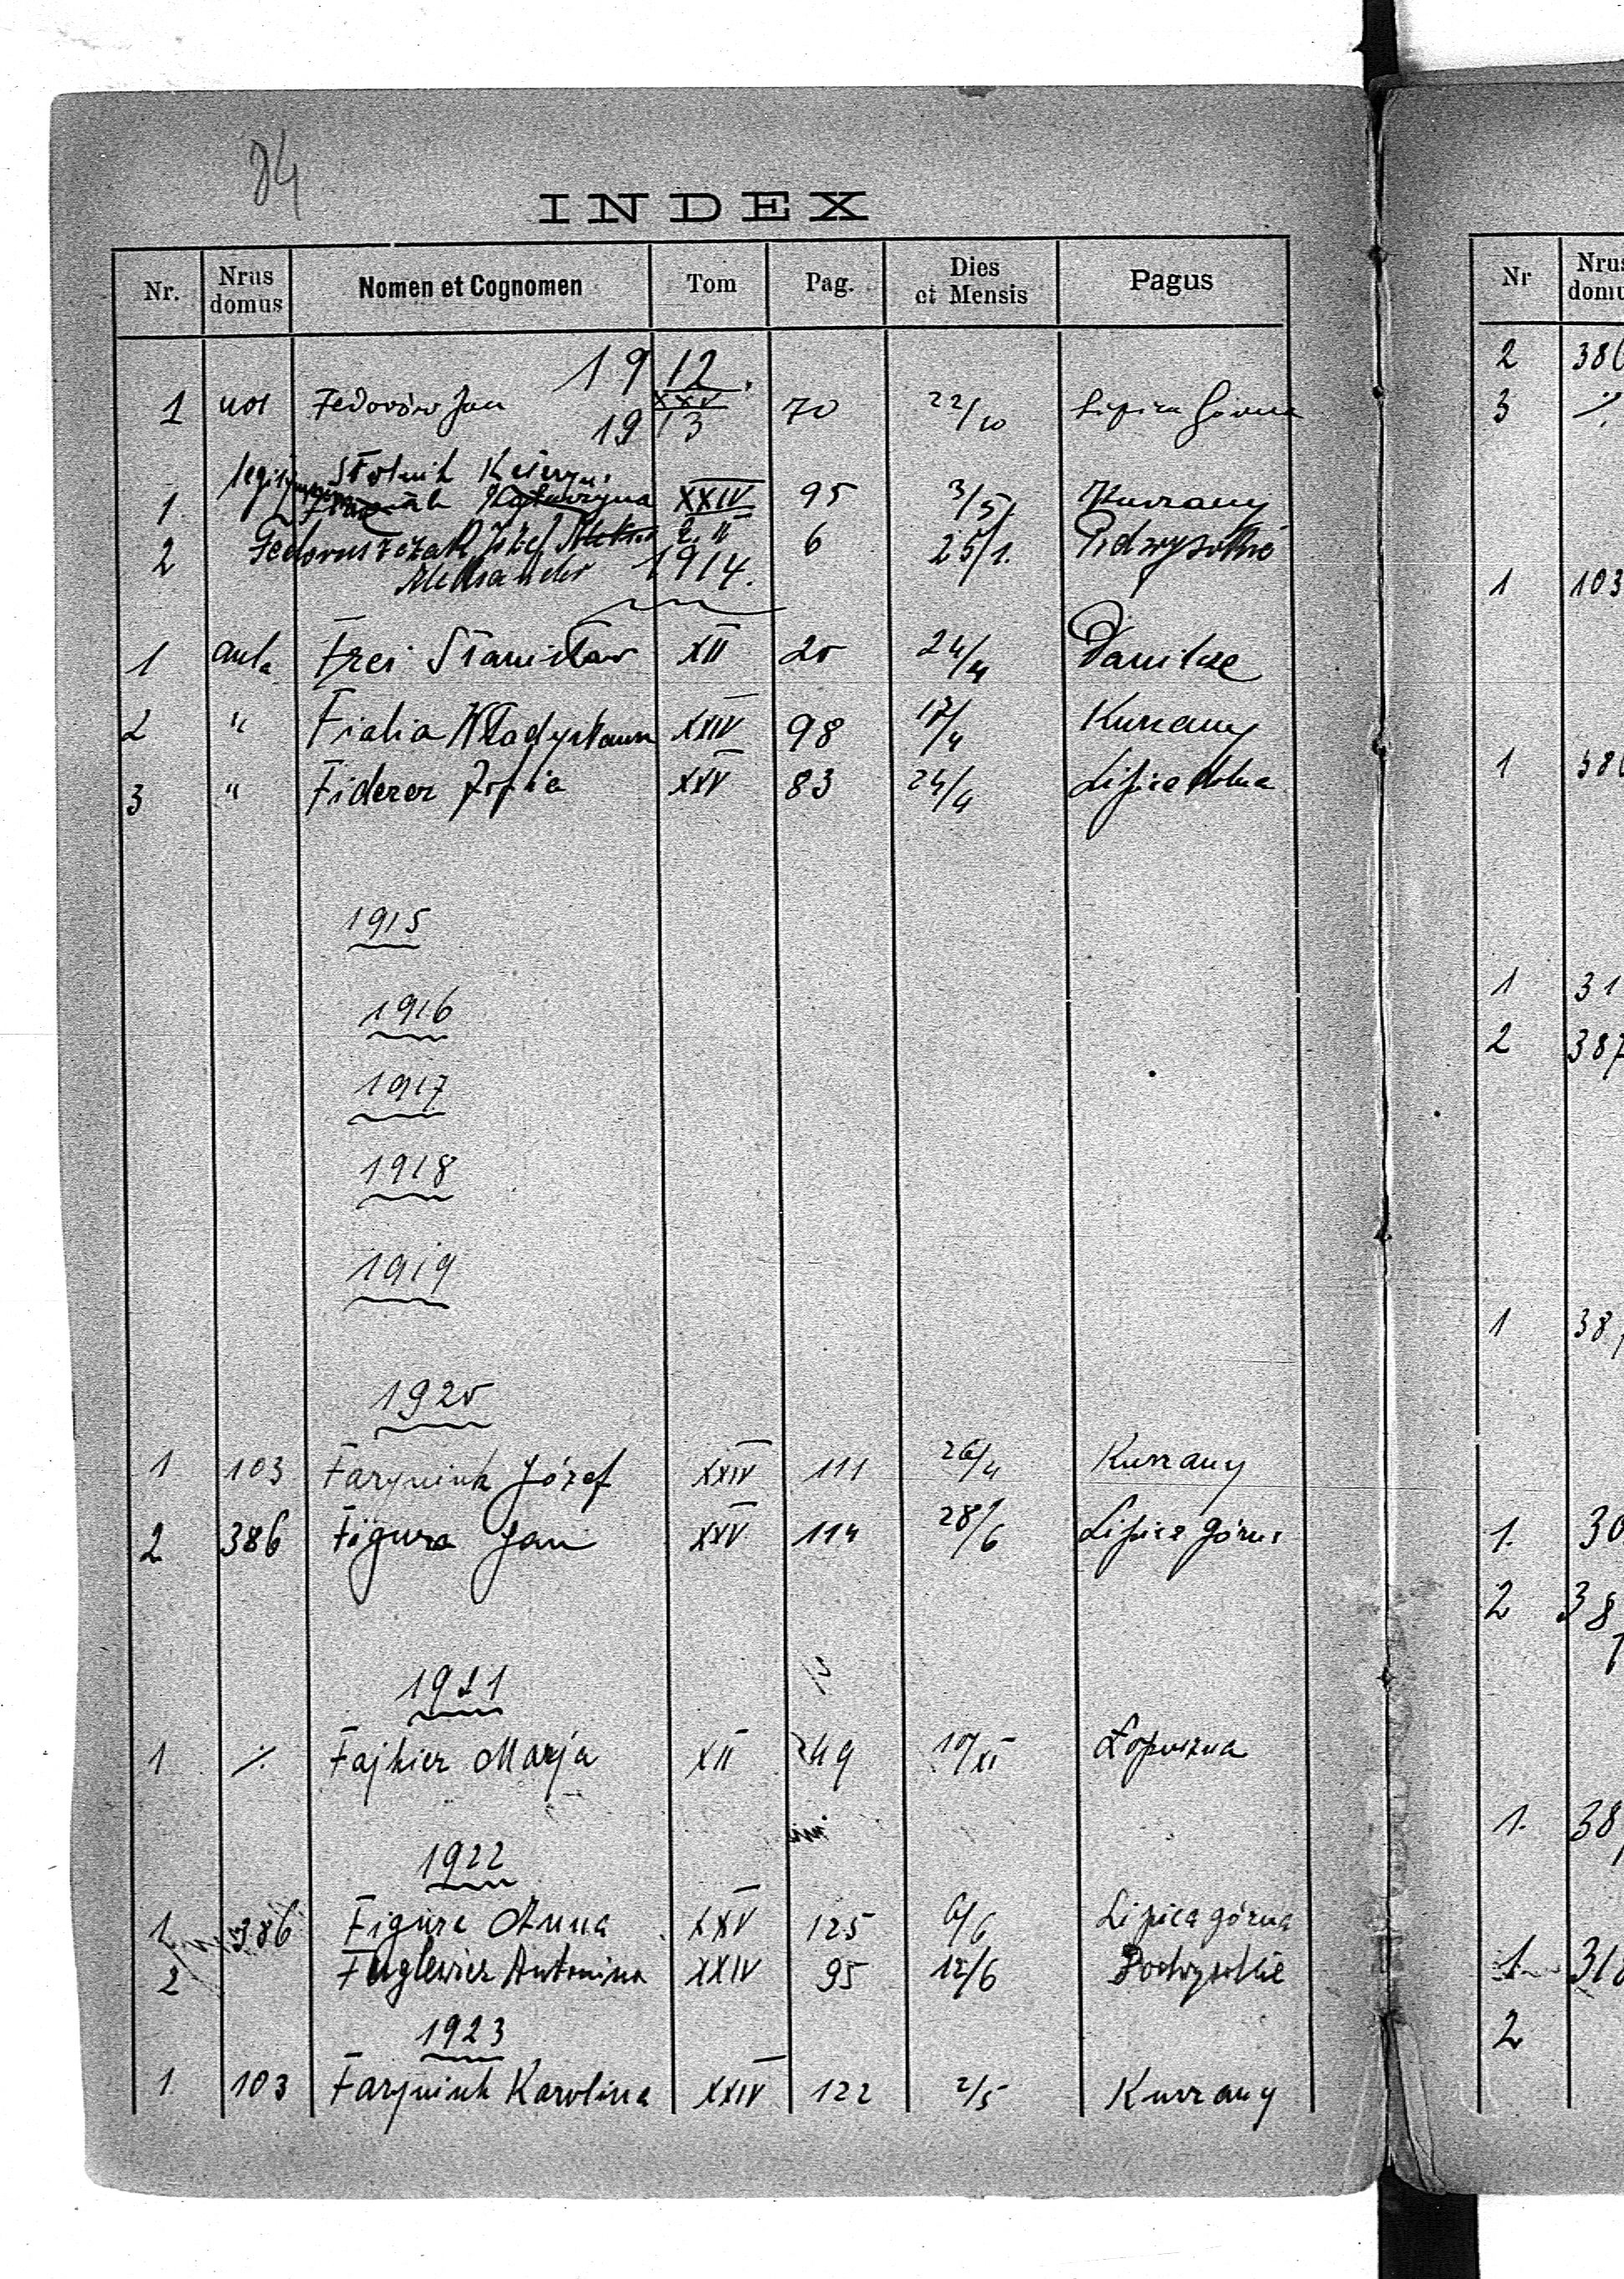 84
INDEX
Nr. Nrus domus Nomen et Cognomen Tom Pag. Dies et Mensis Pagus
1912.
1 Fedorów Jan XXV 70 22/10 Lipica Górna
1913
Stolnik
1. Katarzyna XXIV 95 3/5 Kurzany
2 Józef 6 25/1.
Aleksander 1914.
1 aula Frei Stanisław XII 20 24/4
2 " Fialia Władysława XXIV 98 17/4 Kurzany
3 " Fiderer Zofia XXV 83 24/4 Lipica dolna
1915
1916
1917
1918
1919
1920
1 103 Faryniuk Józef XXIV 111 26/4 Kurzany
2 386 Figura Jan XXV 114 28/6 Lipica górna
1921
1 ./. Fajkier Marja XII 249 10/XI Łopuszna
1922
1 386 Figura Anna XXV 125 6/6 Lipica górna
2 Fuglewicz Antonina XXIV 95 12/6 Podwysokie
1923
1 103 Faryniuk Karolina XXIV 122 2/5 Kurzany
Nr Nrus domu
2 386
3 ./.
1 103
1 386
1 31
2 387
1 38
1. 30
2 38
1. 38
1 318
2